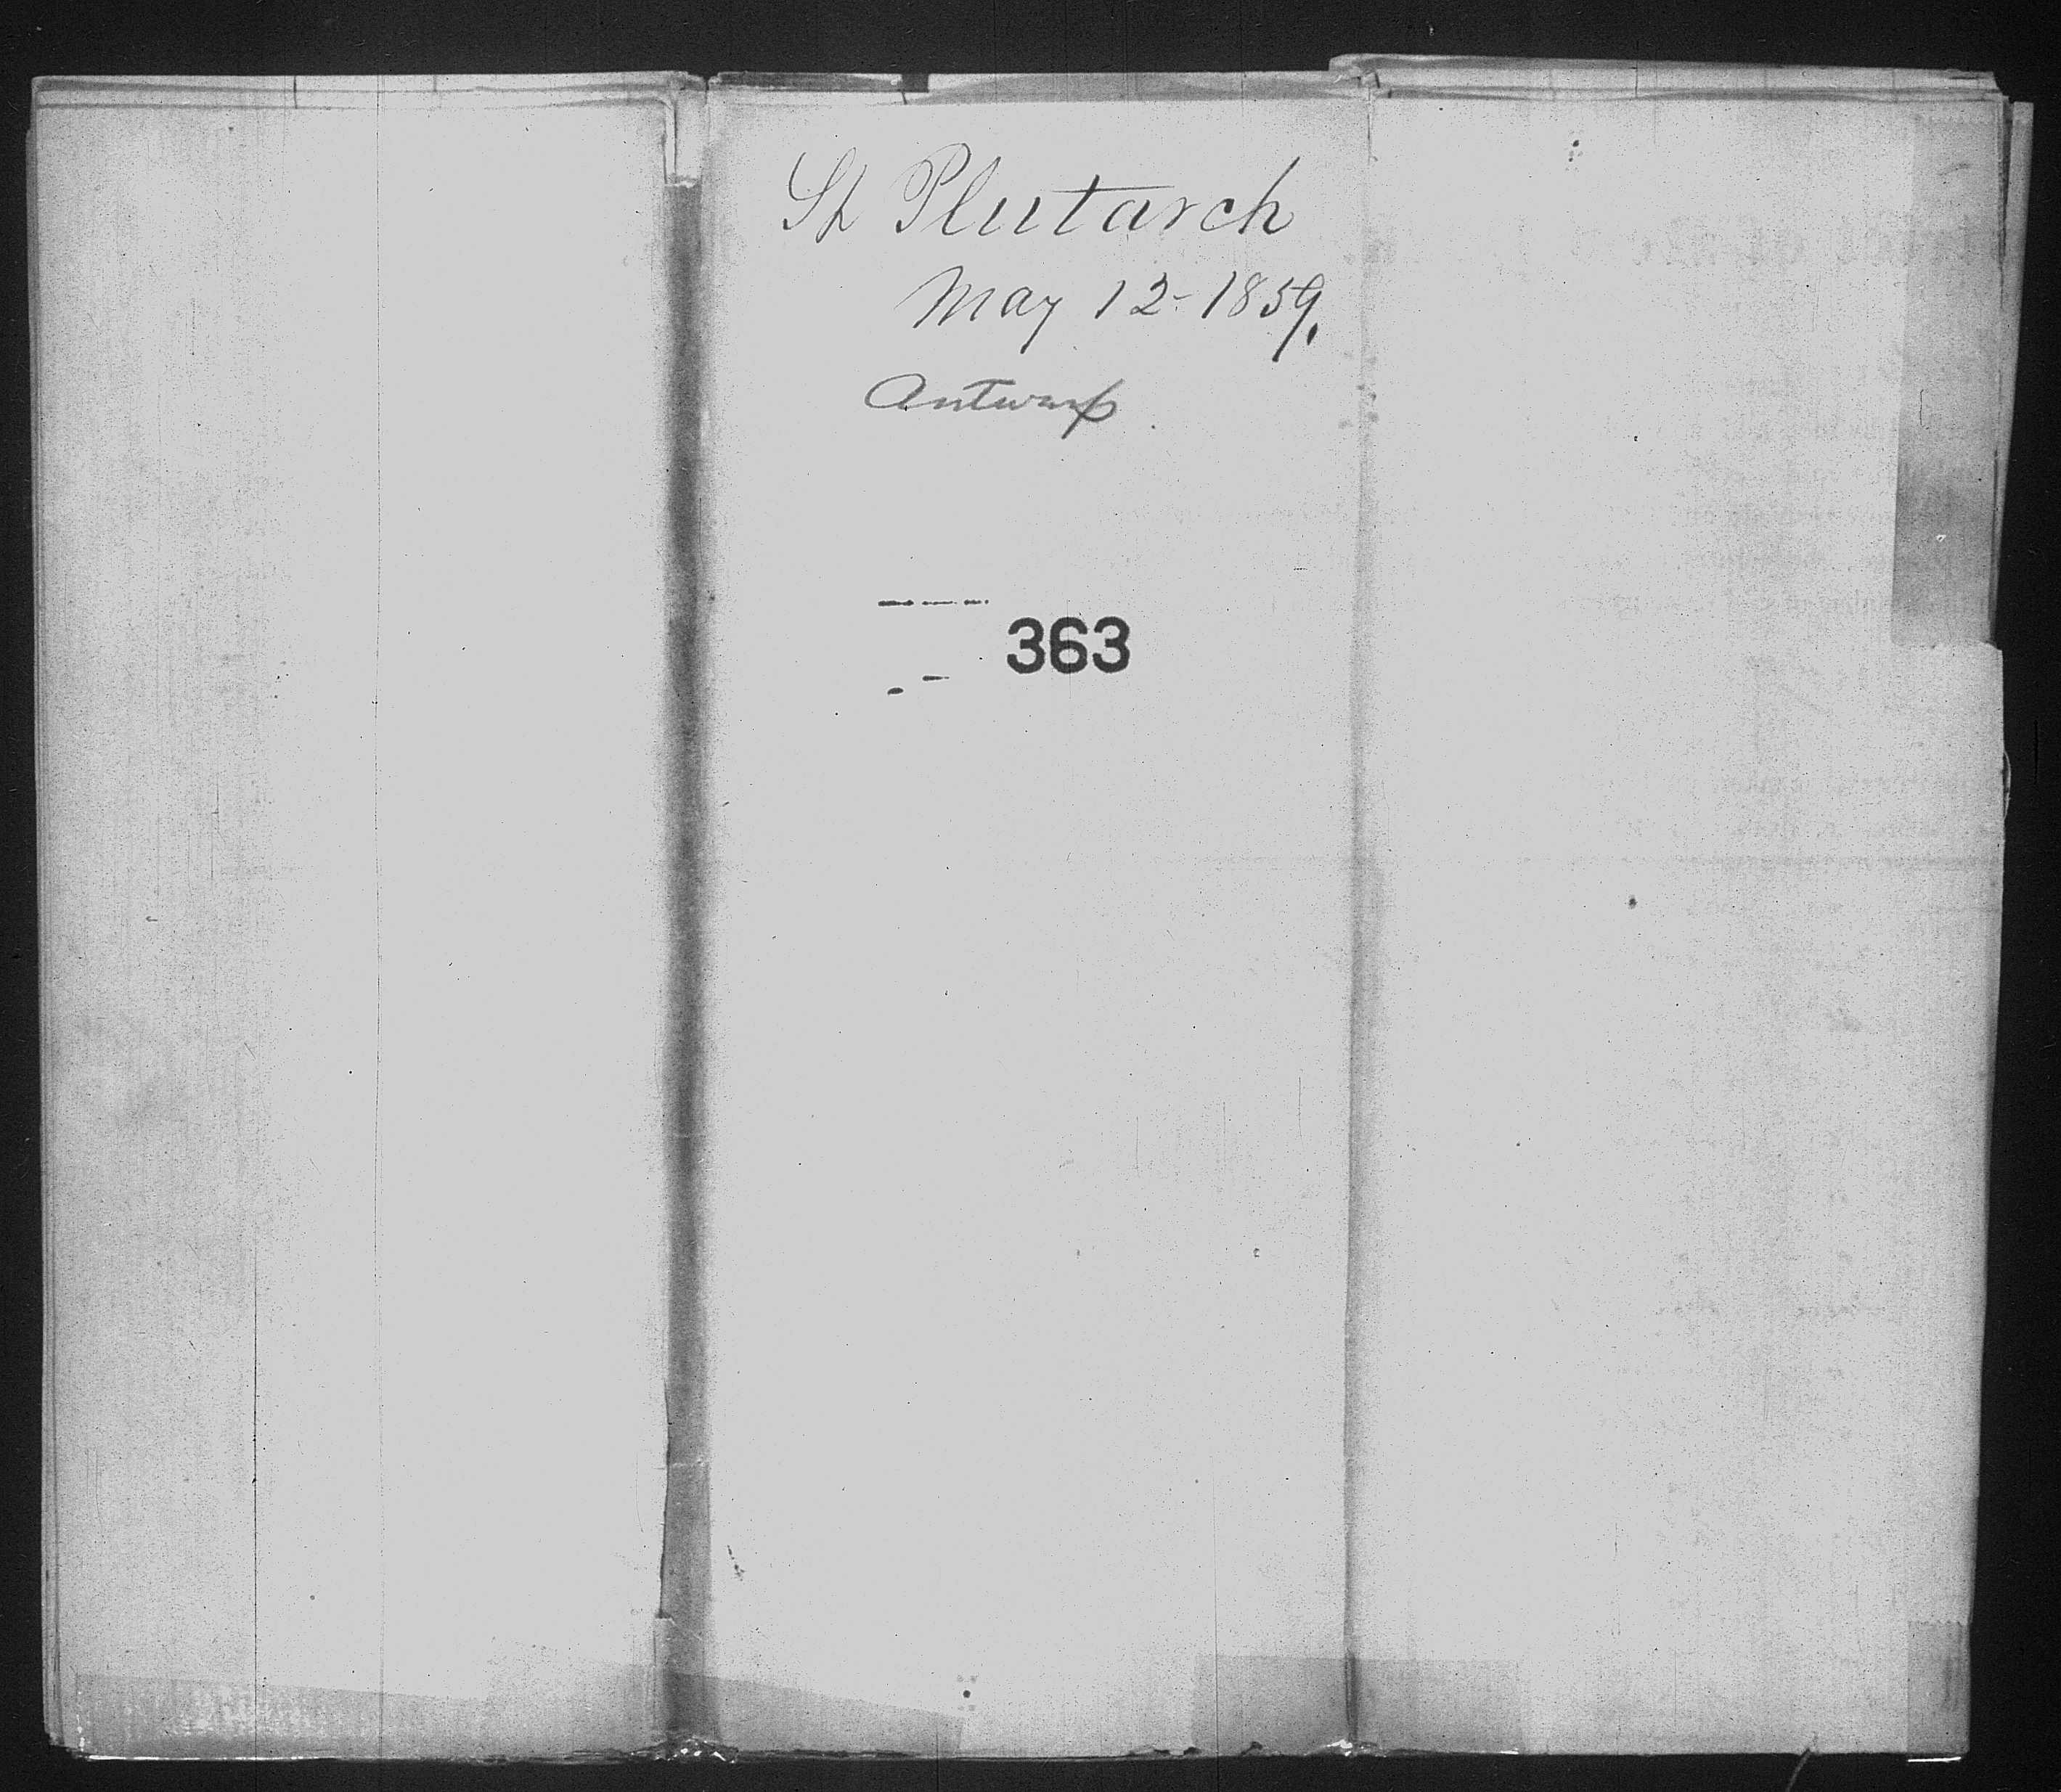 Sh Plutarch
May 12-1859.
Antwerp
363